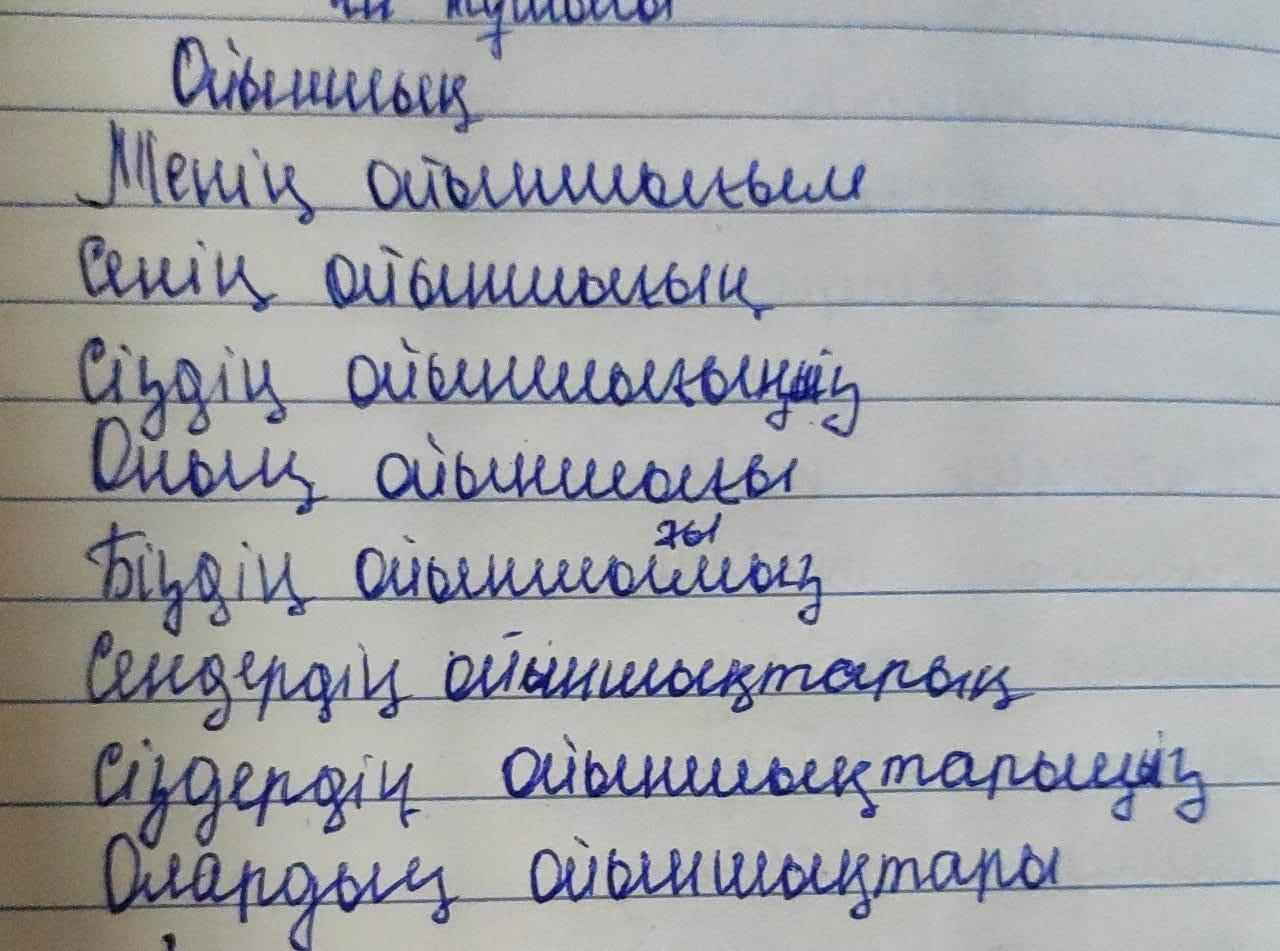 Ойыншық
Менің ойыншығым
Сенің ойыншығың
Сіздің ойыншығыңыз
Оның ойыншығы
Біздің ойыншығымыз
Сендердің ойыншықтарың
Сіздердің ойыншықтарыңыз
Олардың ойыншықтары